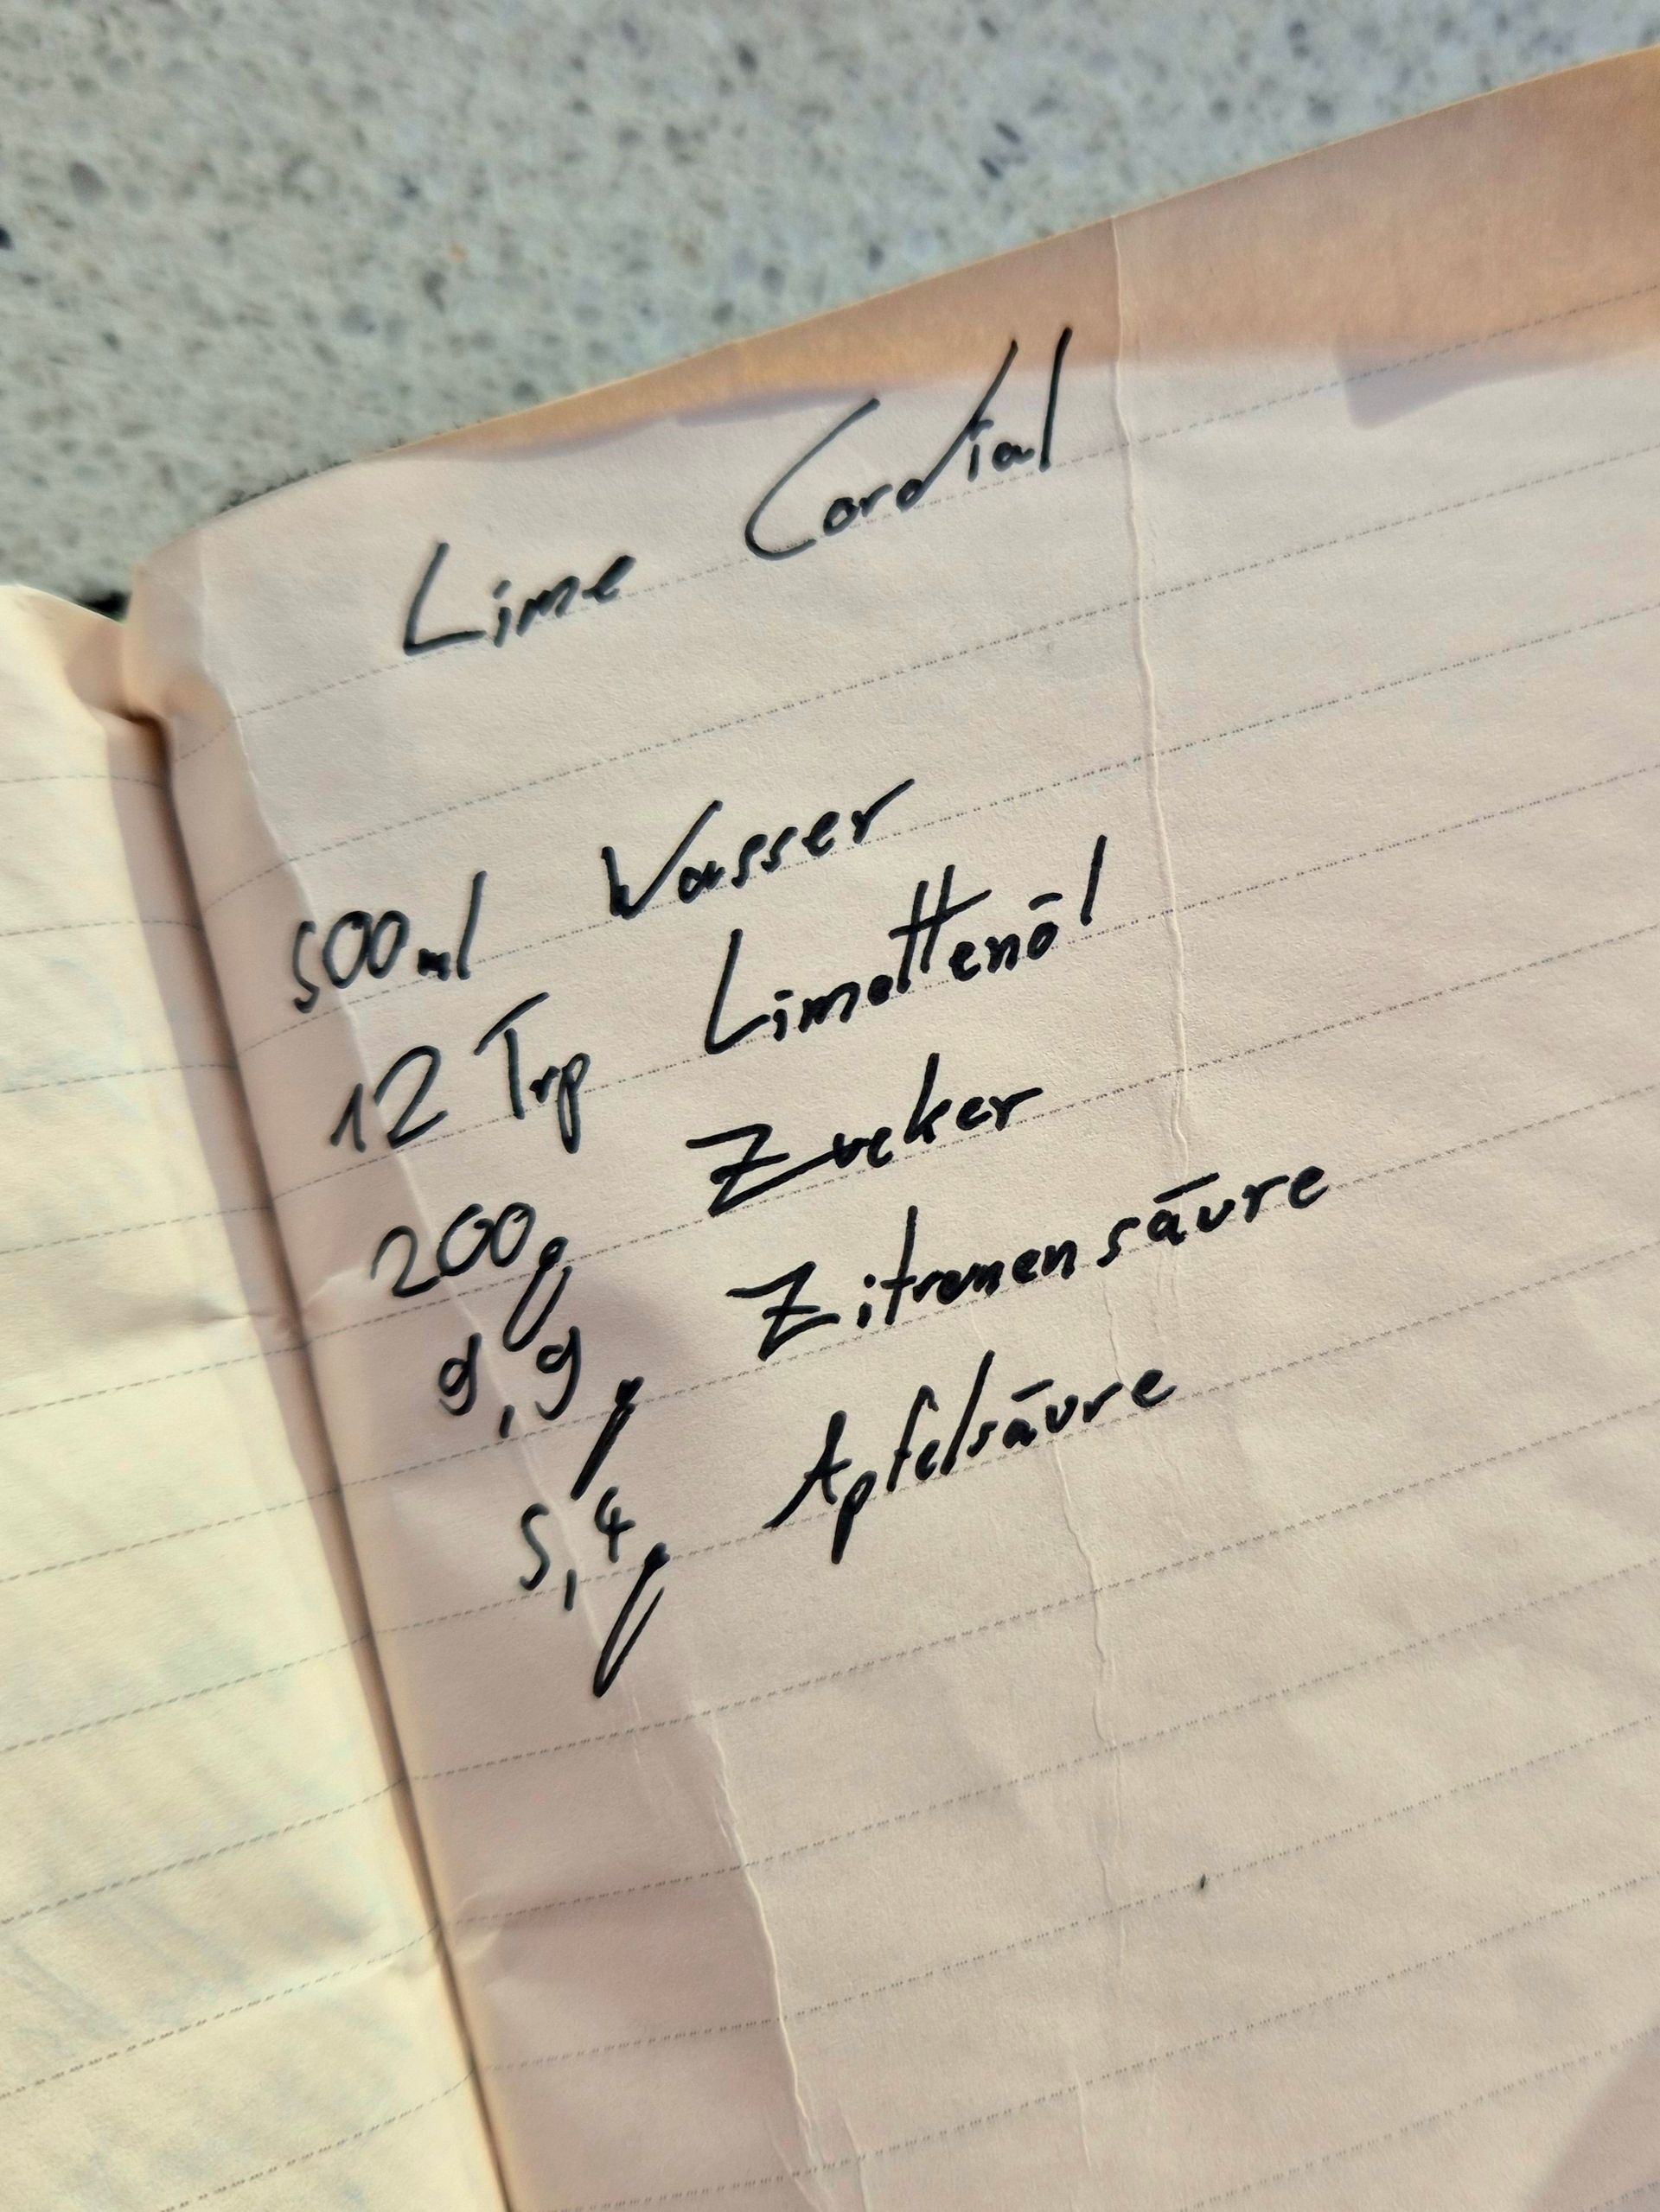 Lime Cordial
500ml Wasser
12 Trp Limettenöl
200g Zucker
9,9g Zitronensäure
5,4g Apfelsäure